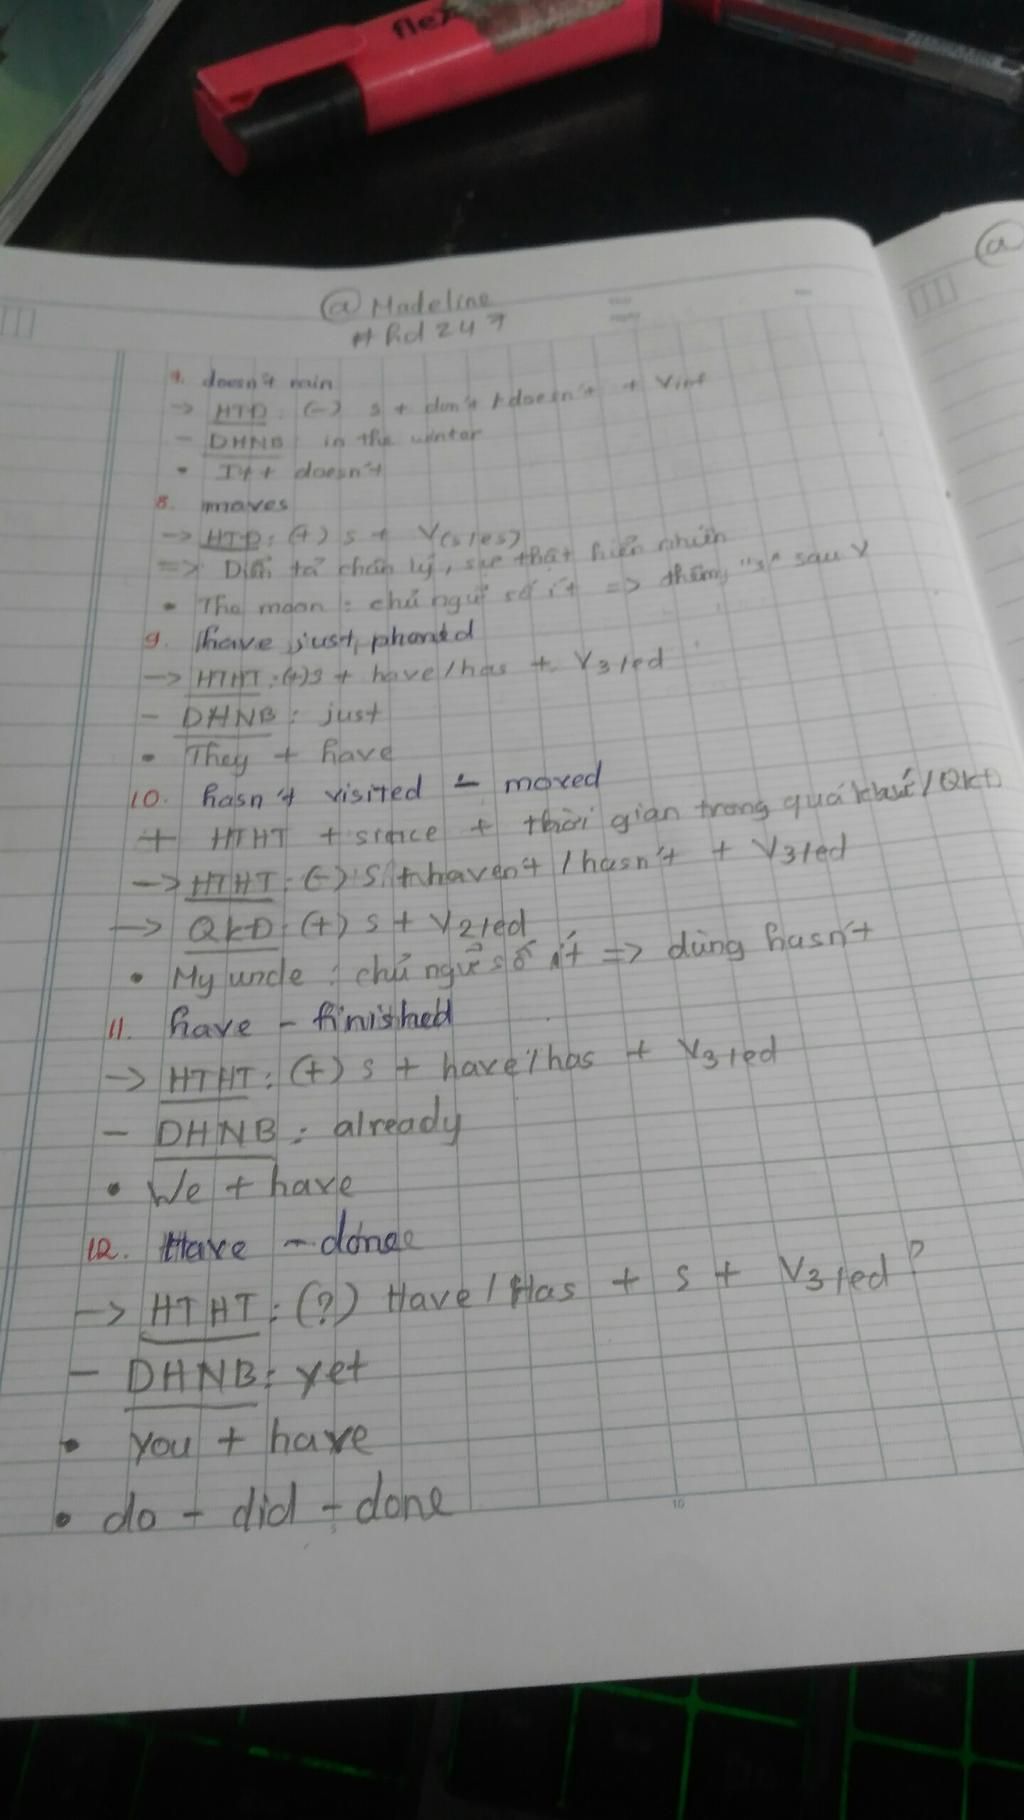 flex
@
@ Madeline
# hd 247
7. doesn't rain
-> HTD: (-) S + don't / doesn't + Vinf
- DHNB: in the winter
• It + doesn't
8. moves
-> HTD: (+) S + V(s/es)
=> Diễn tả chân lý, sự thật hiển nhiên
• The moon: chủ ngữ số ít => thêm "s" sau V
9. have just phoned
-> HTHT: (+) S + have/has + V3/ed
- DHNB: just
• They + have
10. hasn't visited - moved
+ HTHT + since + thời gian trong quá khứ/QKĐ
-> HTHT: (-) S + haven't / hasn't + V3/ed
-> QKD: (+) S + V2/ed
• My uncle: chủ ngữ số ít => dùng hasn't
11. have - finished
-> HTHT: (+) S + have/has + V3/ed
- DHNB: already
• We + have
12. Have - done
-> HTHT: (?) Have/Has + S + V3/ed?
- DHNB: yet
• you + have
• do - did - done
10